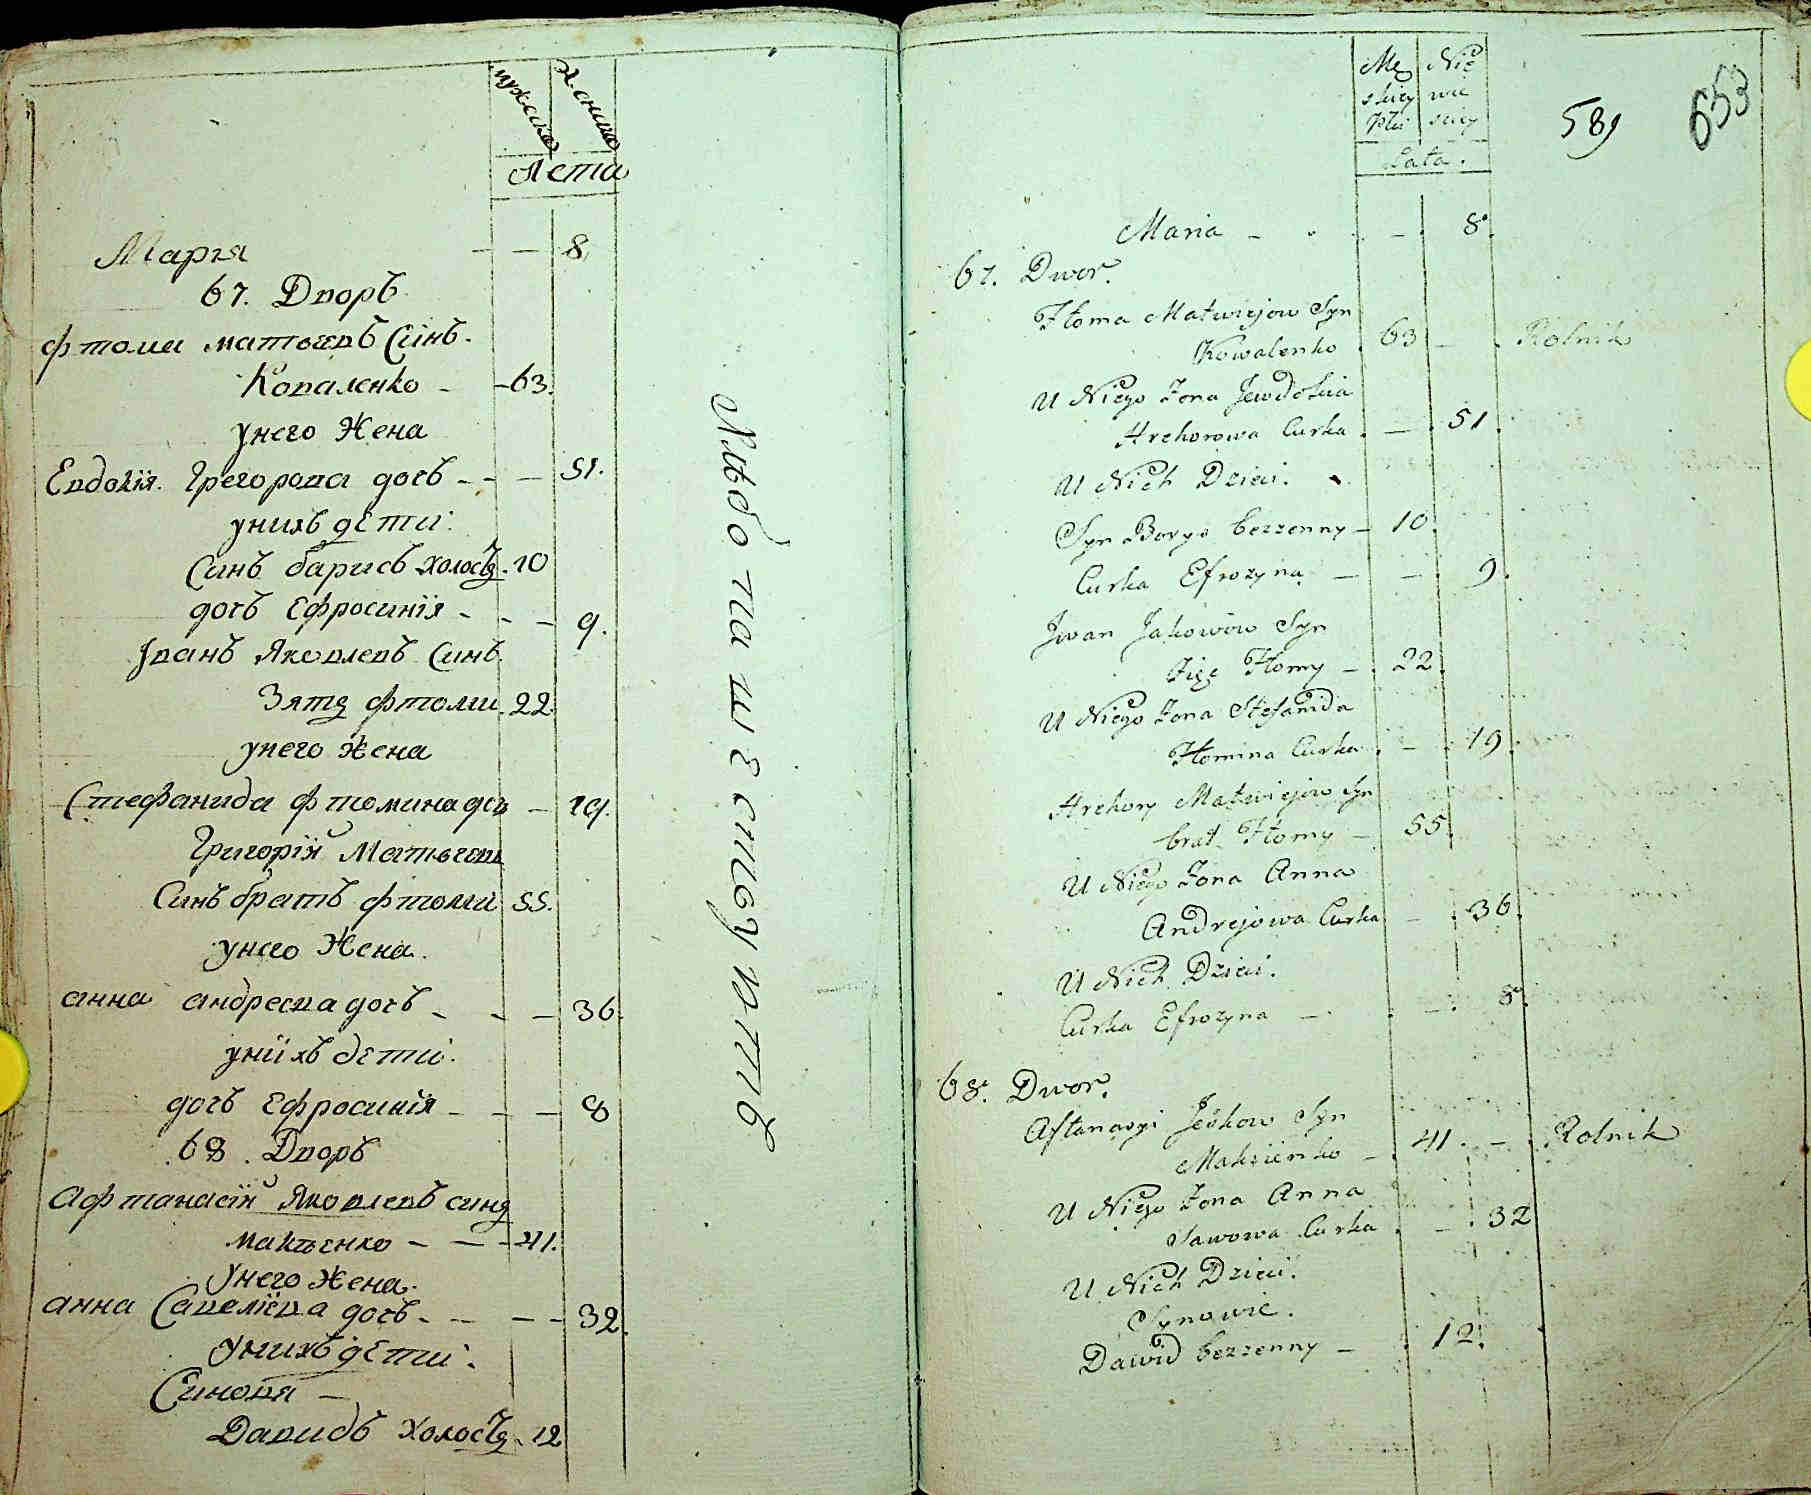 мужеска
женска
Лета
Марія - - 8
67. Дворъ
Фтома матвеевъ Синъ
Коваленко - - 63.
унего Жена
Евдокія Грегорова дочь - - - 51.
унихъ дети
Синъ барисъ холостъ. 10
дочь Ефросинія - - - 9.
Іванъ Яковлевъ Синъ
Зять фтоми. 22.
унего жена
Стефанида фтомина дочь - 19.
Григорій Матвеевъ
Синъ братъ фтоми 55.
унего Жена.
анна андреева дочь - - - 36.
унихъ дети.
дочь Ефросинія - - - 8
68. Дворъ
Афтанасій Яковлевъ синъ
- - - 41.
Унего жена.
анна Савеліева дочь - - - - 32.
Унихъ дети.
Синовя -
Давидъ холостъ - 12
Хлебопашествуютъ
Męskiey Płci
Niewieściey
Lata.
589
653
Maria - - 8.
67. Dwor.
Ftoma Matwiejow Syn
Kowalenko 63 - Rolnik
U Niego Żona Jewdokia
Hrehorowa Curka - 51.
U Nich Dzieci.
Syn Borys bezzenny - 10.
Curka Efrozyna - - 9.
Jwan Jakowow Syn
Zięć Ftomy - 22.
U Niego Żona Stefanida
Ftomina Curka - 19.
Hrehory Matwiejow Syn
brat Ftomy - 55.
U Niego Żona Anna
Andrejowa Curka - 36.
U Nich Dzieci.
Curka Efrozyna - - 8.
68. Dwor.
Aftanasyi Jaśkow Syn
- 41. - Rolnik
U Niego Żona Anna
Sawowa Curka - 32
U Nich Dzieci.
Synowie.
Dawid bezzenny - 12.